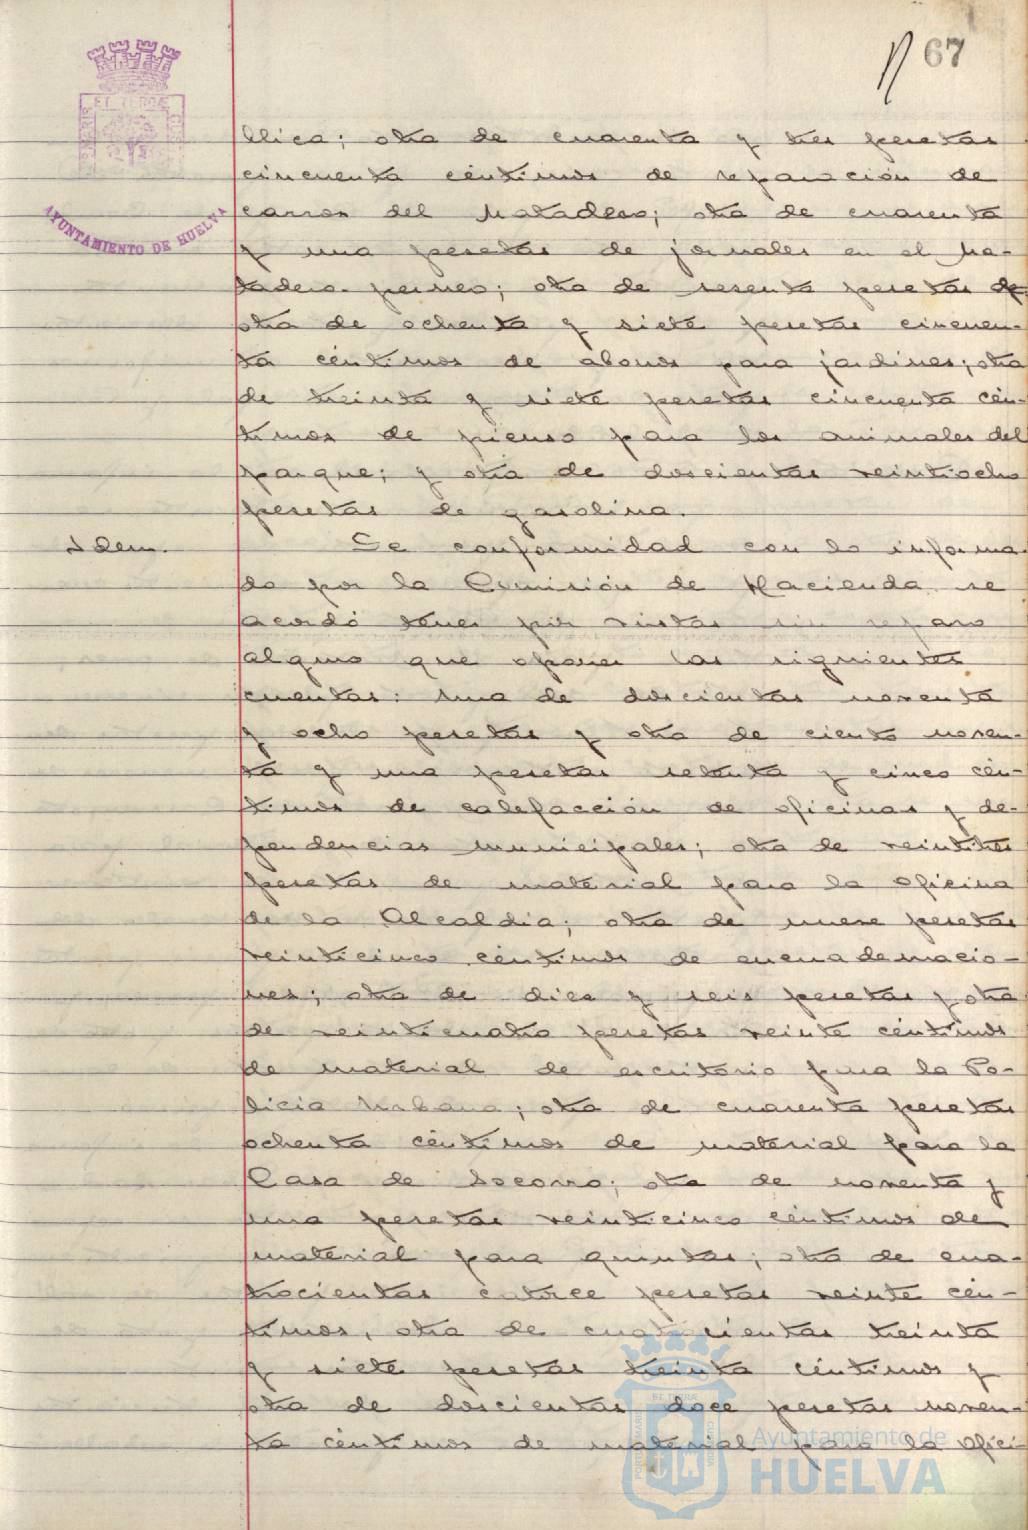 67
blica; otra de cuarenta y tres pesetas
cincuenta céntimos de reparación de
carros del Matadero; otra de cuarenta
y una pesetas de jornales en el Ma-
tadero otra de sesenta pesetas de
otra de ochenta y siete pesetas cincuen-
ta céntimos de abonos para jardines; otra
de treinta y siete pesetas cincuenta cén-
timos de pienso para los animales del
parque; y otra de doscientas veintiocho
pesetas de gasolina.
Idem.
De conformidad con lo informa-
do por la Comisión de Hacienda se
acordó tener por vistas sin reparo
alguno que oponer las siguientes
cuentas: una de doscientas noventa
y ocho pesetas y otra de ciento noven-
ta y una pesetas setenta y cinco cén-
timos de calefacción de oficinas y de-
pendencias municipales; otra de veintitres
pesetas de material para la oficina
de la Alcaldía; otra de nueve pesetas
veinticinco céntimos de encuadernacio-
nes; otra de diez y seis pesetas y otra
de veinticuatro pesetas veinte céntimos
de material de escritorio para la Po-
licia Urbana; otra de cuarenta pesetas
ochenta céntimos de material para la
Casa de Socorro; otra de noventa y
una pesetas veinticinco céntimos de
material para quintas; otra de cua-
trocientas catorce pesetas veinte cén-
timos, otra de cuatrocientas treinta
y siete pesetas treinta céntimos y
otra de doscientas doce pesetas noven-
ta céntimos de material para la ofici-
AYUNTAMIENTO DE HUELVA
Ayuntamiento de
HUELVA